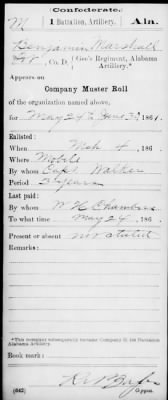 Confederate.
M 1 Battalion, Artillery. Ala.
Benjamin Marshall
Co. D, Gee's Regiment, Alabama Artillery.*
Appears on
Company Muster Roll
of the organization named above,
for May 24 to June 30, 1861.
Enlisted:
When Mch 4, 186 .
Where Mobile
By whom Capt Walker
Period 3 years
Last paid:
By whom W H Chambers
To what time May 24, 186 .
Present or absent not stated
Remarks:
*This company subsequently became Company D, 1st Battalion
Alabama Artillery.
Book mark:
(642) Copyist.